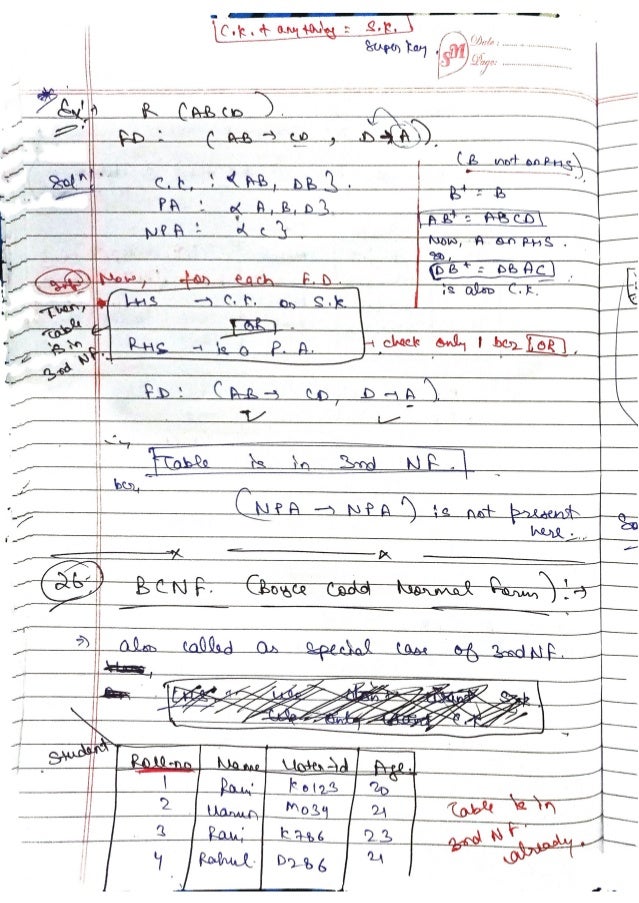 C.K. + anything = S.K.
Super key.
SM
Date :
Page:
* Ex:→ R (ABCD)
FD : (AB → CD , D → A)
Solⁿ: C.K. : {AB, DB}.
PA : {A, B, D}
NPA : {C}.
(B not on RHS)
B⁺ = B
AB⁺ = ABCD
Now, A on RHS.
so,
DB⁺ = DBAC
is also C.K.
Now, for each F.D.
LHS → C.K. or S.K
OR
RHS → is a P.A.
Then, Table is in 3rd NF.
→ check only 1 bcz [OR].
FD: (AB → CD, D → A).
Table is in 3rd NF.
bcz,
(NPA → NPA) is not present here.
26. BCNF. (Boyce Codd Normal Form) :→
⇒ also called as special case of 3rd NF.
Student
Roll-no Name Voter-id Age.
1 Ravi K0123 20
2 Varun M034 21
3 Ravi K786 23
4 Rahul. D286 21
Table is in 3rd NF already.